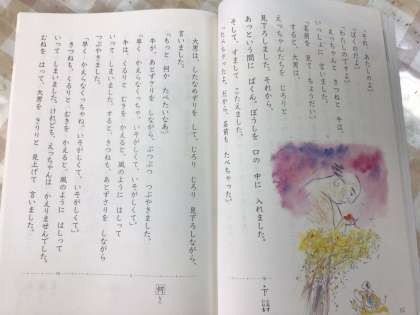 「それ、あたしのよ。」
「ぼくのだよ。」
「わたしのですよ。」
えっちゃんと きつねと 牛は、
いっしょに 言いました。
「名前を 見て ちょうだい。」
すると、大男は、
えっちゃんたちを じろりと
見下ろしました。それから、
あっという間に ぱくん。ぼうしを 口の 中に 入れました。
そして、すまして こたえました。
「たべちゃったよ。だから、名前も たべちゃった。」
下 お
大男は、したなめずりを して、じろり じろり 見下ろしながら、
言いました。
「もっと 何か たべたいなあ。」
牛が、あとずさりを しながら、ぶつぶつ つぶやきました。
「早く かえらなくっちゃ。いそがしくて、いそがしくて。」
牛は、くるりと むきを かえると、風のように はしって
いってしまいました。すると、きつねも、あとずさりを しながら
つぶやきました。
「早く かえらなくっちゃね。いそがしくて、いそがしくて。」
きつねも、くるりと むきを かえると、風のように はしって
いってしまいました。けれども、えっちゃんは かえりませんでした。
むねを はって、大男を きりりと 見上げて 言いました。
何